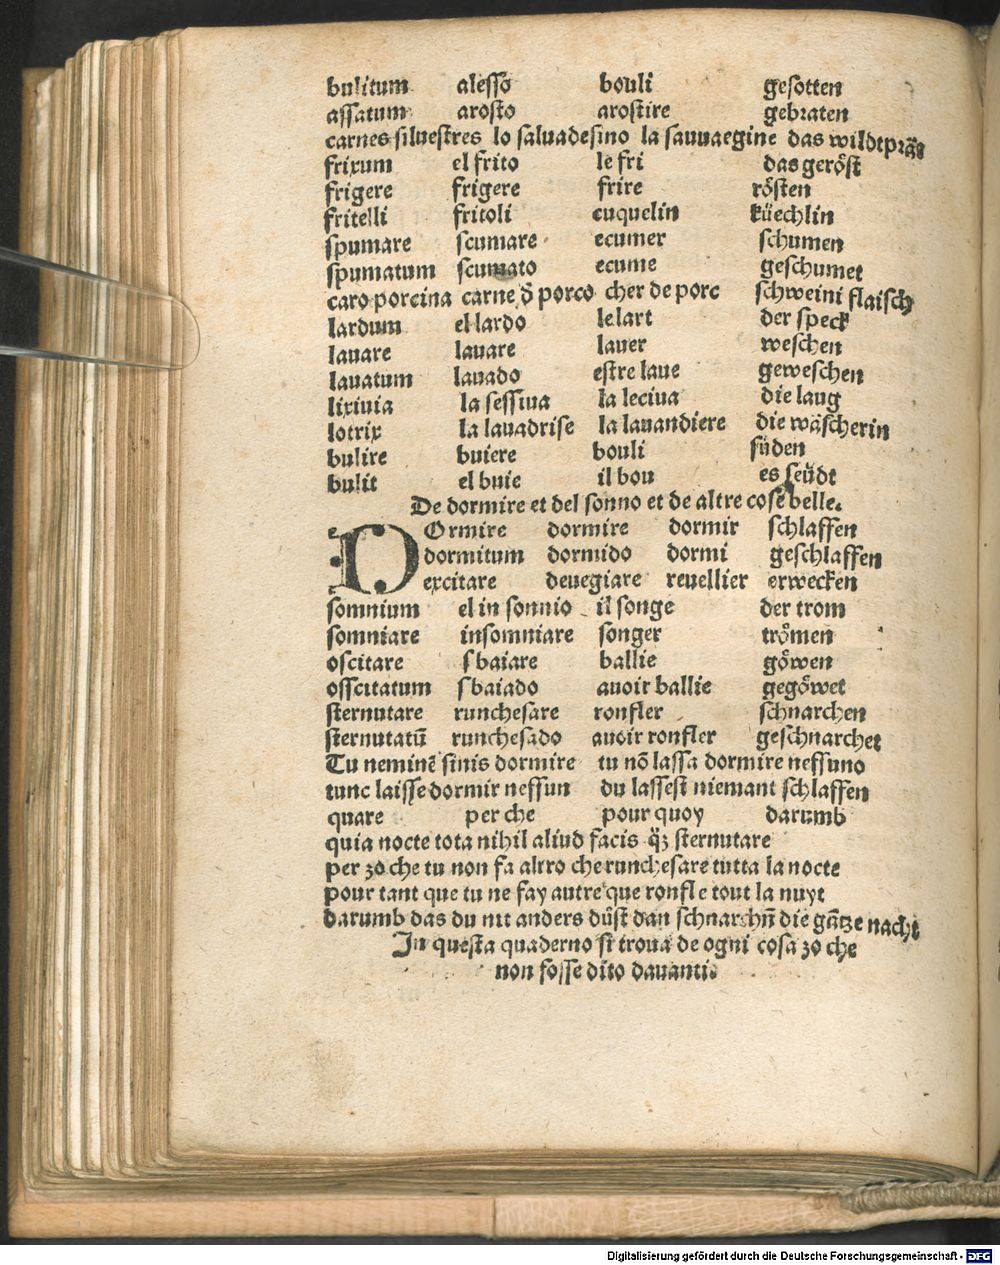 bulitum alesso bouli gesotten
assatum arosto arostire gebraten
carnes siluestres lo saluadesino la sauuaegine das wildtprät
frixum el frito le fri das geröst
frigere frigere frire rösten
fritelli fritoli cuquelin küechlin
spumare scumare ecumer schumen
spumatum scumato ecume geschumet
caro porcina carne d̄ porco cher de porc schweini flaisch
lardum el lardo le lart der speck
lauare lauare lauer weschen
lauatum lauado estre laue geweschen
lixiuia la sessiua la leciua die laug
lotrix la lauadrise la lauandiere die wäscherin
bulire buiere bouli süden
bulit el buie il bou es seüdt
De dormire et del sonno et de altre cose belle.
DOrmire dormire dormir schlaffen
dormitum dormido dormi geschlaffen
excitare deuegiare reuellier erwecken
somnium el in sonnio il songe der trom
somniare insomniare songer trömen
oscitare sbaiare ballie göwen
osscitatum sbaiado auoir ballie gegöwet
sternutare runchesare ronfler schnarchen
sternutatū runchesado auoir ronfler geschnarchet
Tu neminē sinis dormire tu nō lassa dormire nessuno
tunc laisse dormir nessun du lassest niemant schlaffen
quare per che pour quoy darumb
quia nocte tota nihil aliud facis qȝ sternutare
per zo che tu non fa altro che runchesare tutta la nocte
pour tant que tu ne fay autre que ronfle tout la nuyt
darumb das du nit anders důst dan schnarchn̄ die gātze nacht
In questa quaderno si troua de ogni cosa zo che
non fosse dito dauanti.
Digitalisierung gefördert durch die Deutsche Forschungsgemeinschaft - DFG